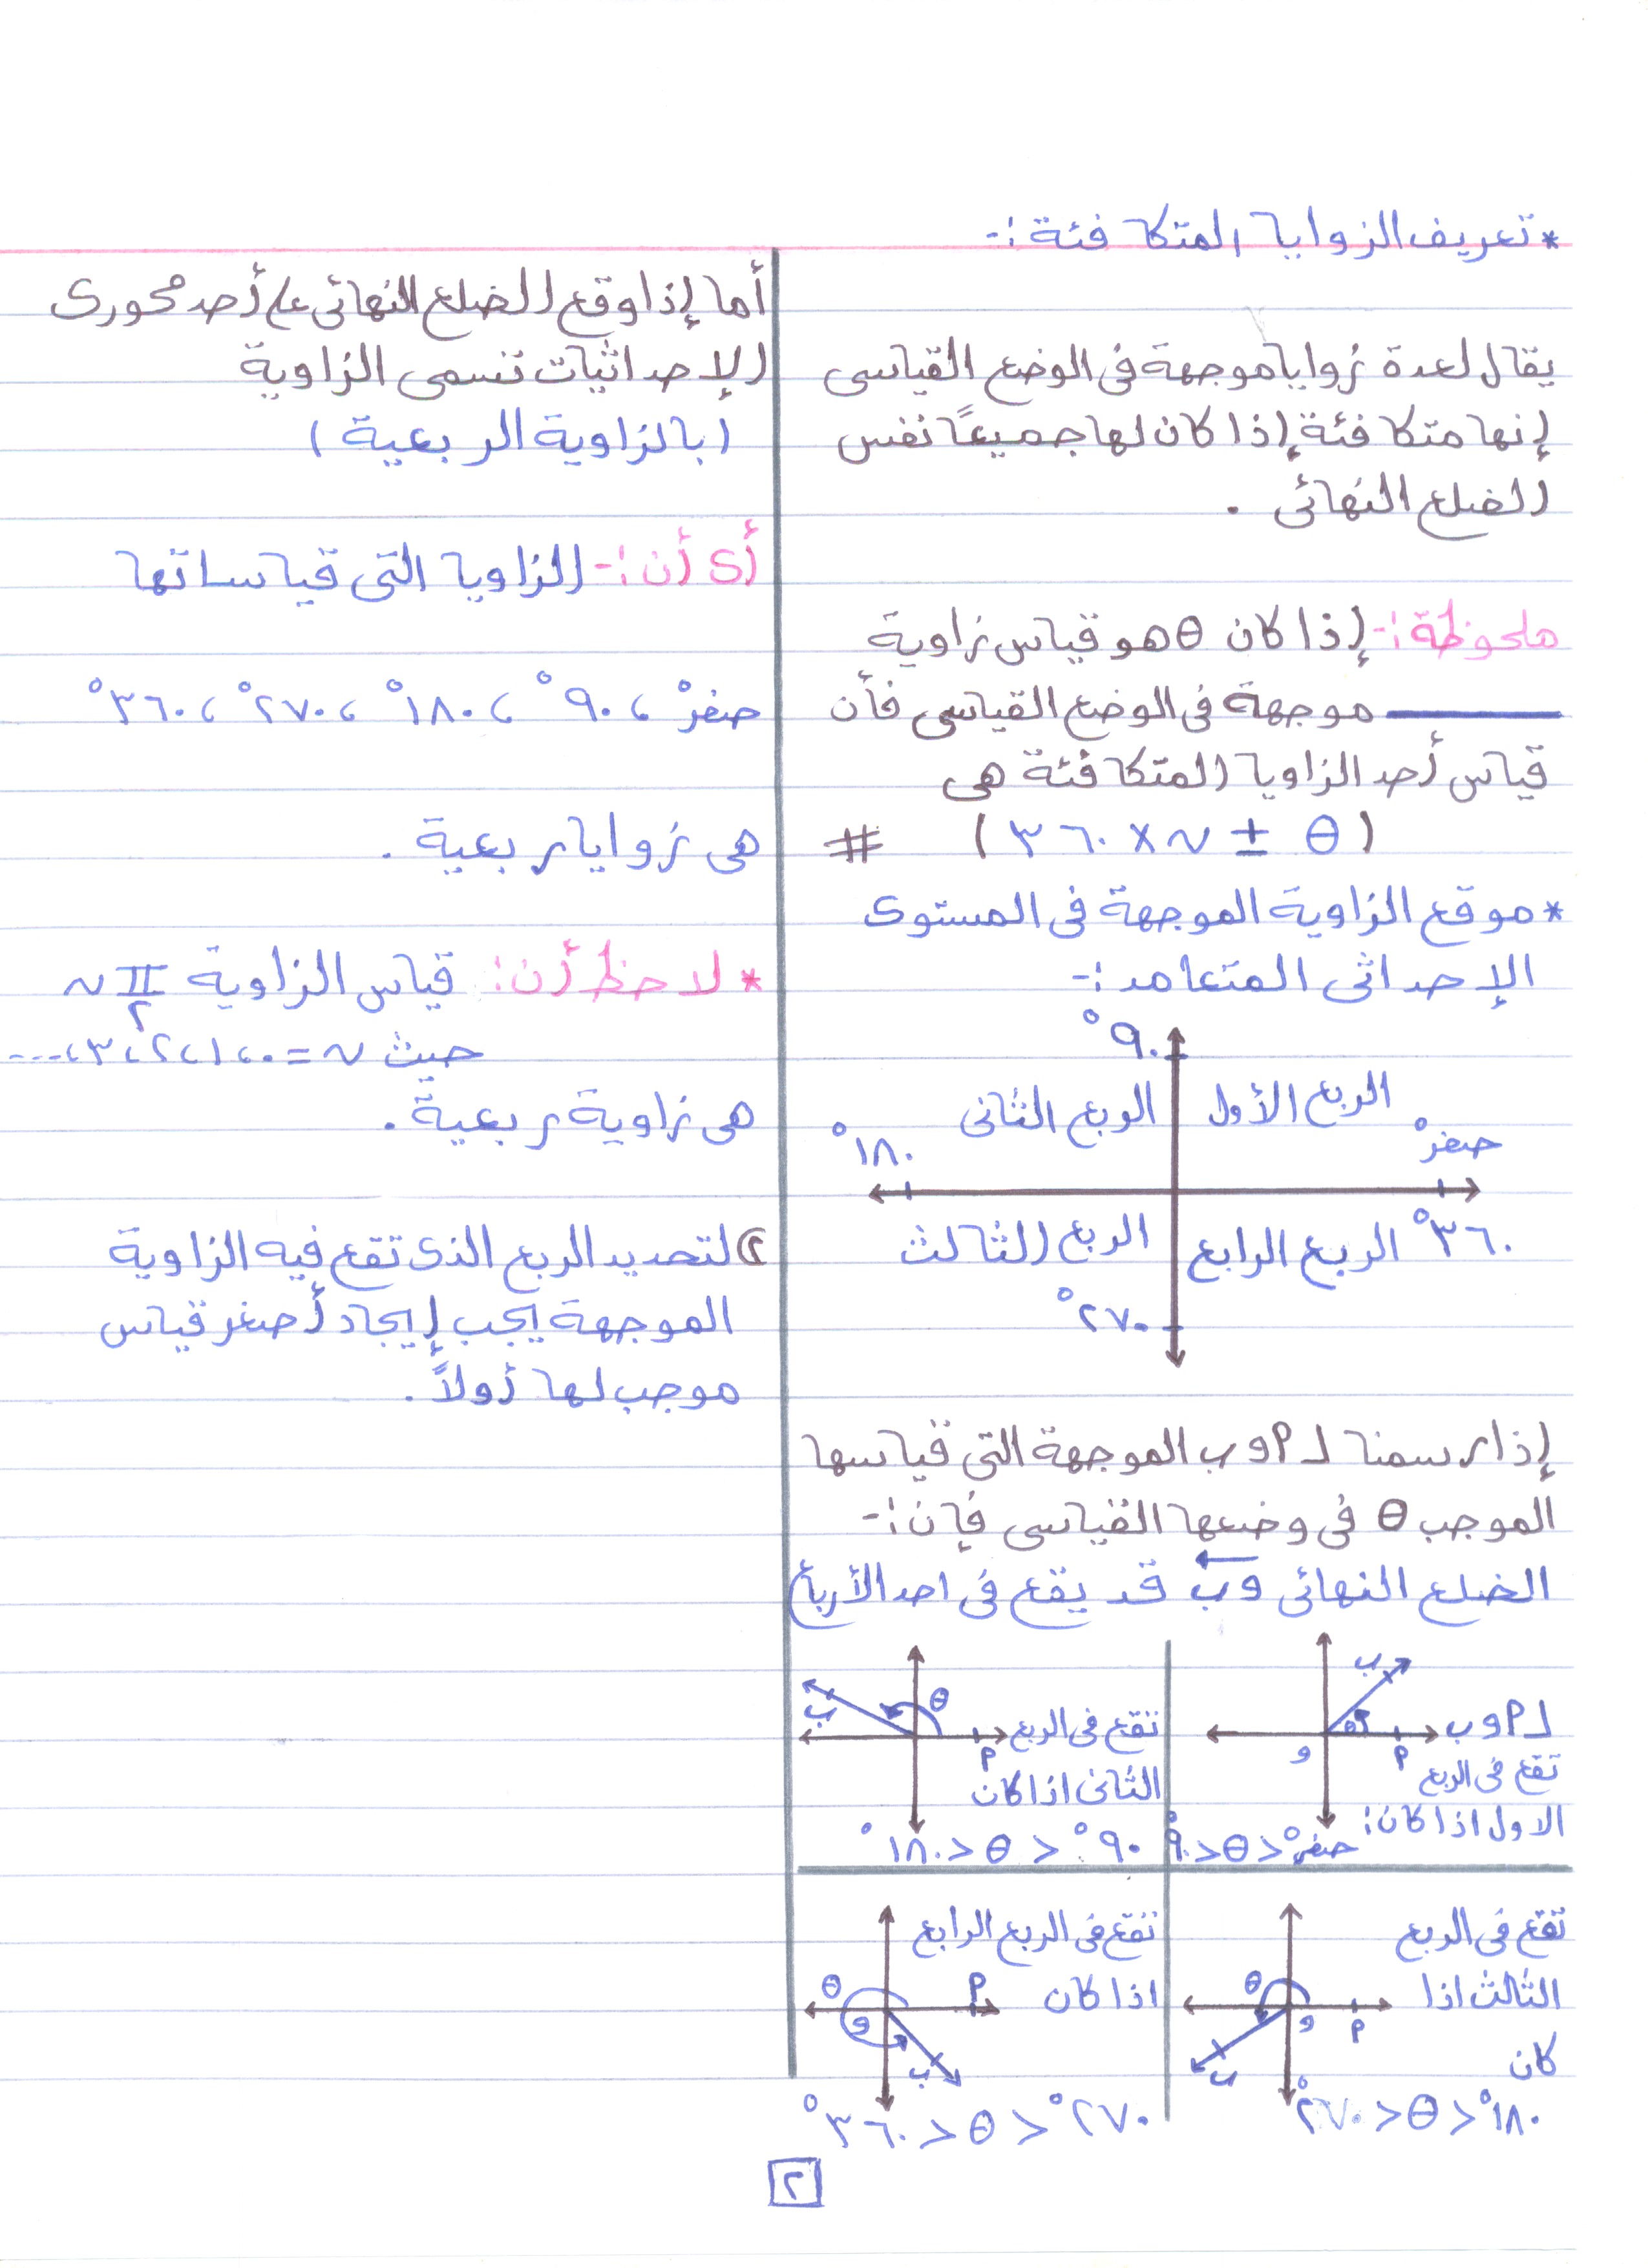 * تعريف الزوايا المتكافئة :-
يقال لعدة زوايا موجهة فى الوضع القياسى
إنها متكافئة إذا كان لها جميعًا نفس
الضلع النهائى .
ملحوظة :- إذا كان θ هو قياس زاوية
موجهة فى الوضع القياسى فأن
قياس أحد الزاويا المتكافئة هى
( θ ± ن × ٣٦٠ ) #
* موقع الزاوية الموجهة فى المستوى
الإحداثى المتعامد :-
٩٠°
الربع الأول
الربع الثانى
صفر°
١٨٠°
٣٦٠°
الربع الرابع
الربع الثالث
٢٧٠°
إذا رسمنا ∠ أ و ب الموجهة التى قياسها
الموجب θ فى وضعها القياسى فإن :-
الضلع النهائى و ب قد يقع فى احد الأرباع
ب
∠ أ و ب
θ
أ
و
تقع فى الربع
الاول اذا كان :
صفر° < θ < ٩٠°
θ
ب
أ
تقع فى الربع
الثانى اذا كان
٩٠° < θ < ١٨٠°
تقع فى الربع
الثالث اذا
كان
θ
و
أ
ب
١٨٠° < θ < ٢٧٠°
تقع فى الربع الرابع
اذا كان
θ
أ
و
ب
٢٧٠° < θ < ٣٦٠°
أما إذا وقع الضلع النهائى على أحد محورى
الإحداثيات تسمى الزاوية
( بالزاوية الربعية )
أى أن :- الزاويا التى قياساتها
صفر° ، ٩٠° ، ١٨٠° ، ٢٧٠° ، ٣٦٠°
هى زوايا ربعية .
* لاحظ أن : قياس الزاوية π/٢ ن
حيث ن = ٠ ، ١ ، ٢ ، ٣ ، ...
هى زاوية ربعية .
٢) لتحديد الربع الذى تقع فيه الزاوية
الموجهة يجب إيجاد أصغر قياس
موجب لها أولاً .
٢